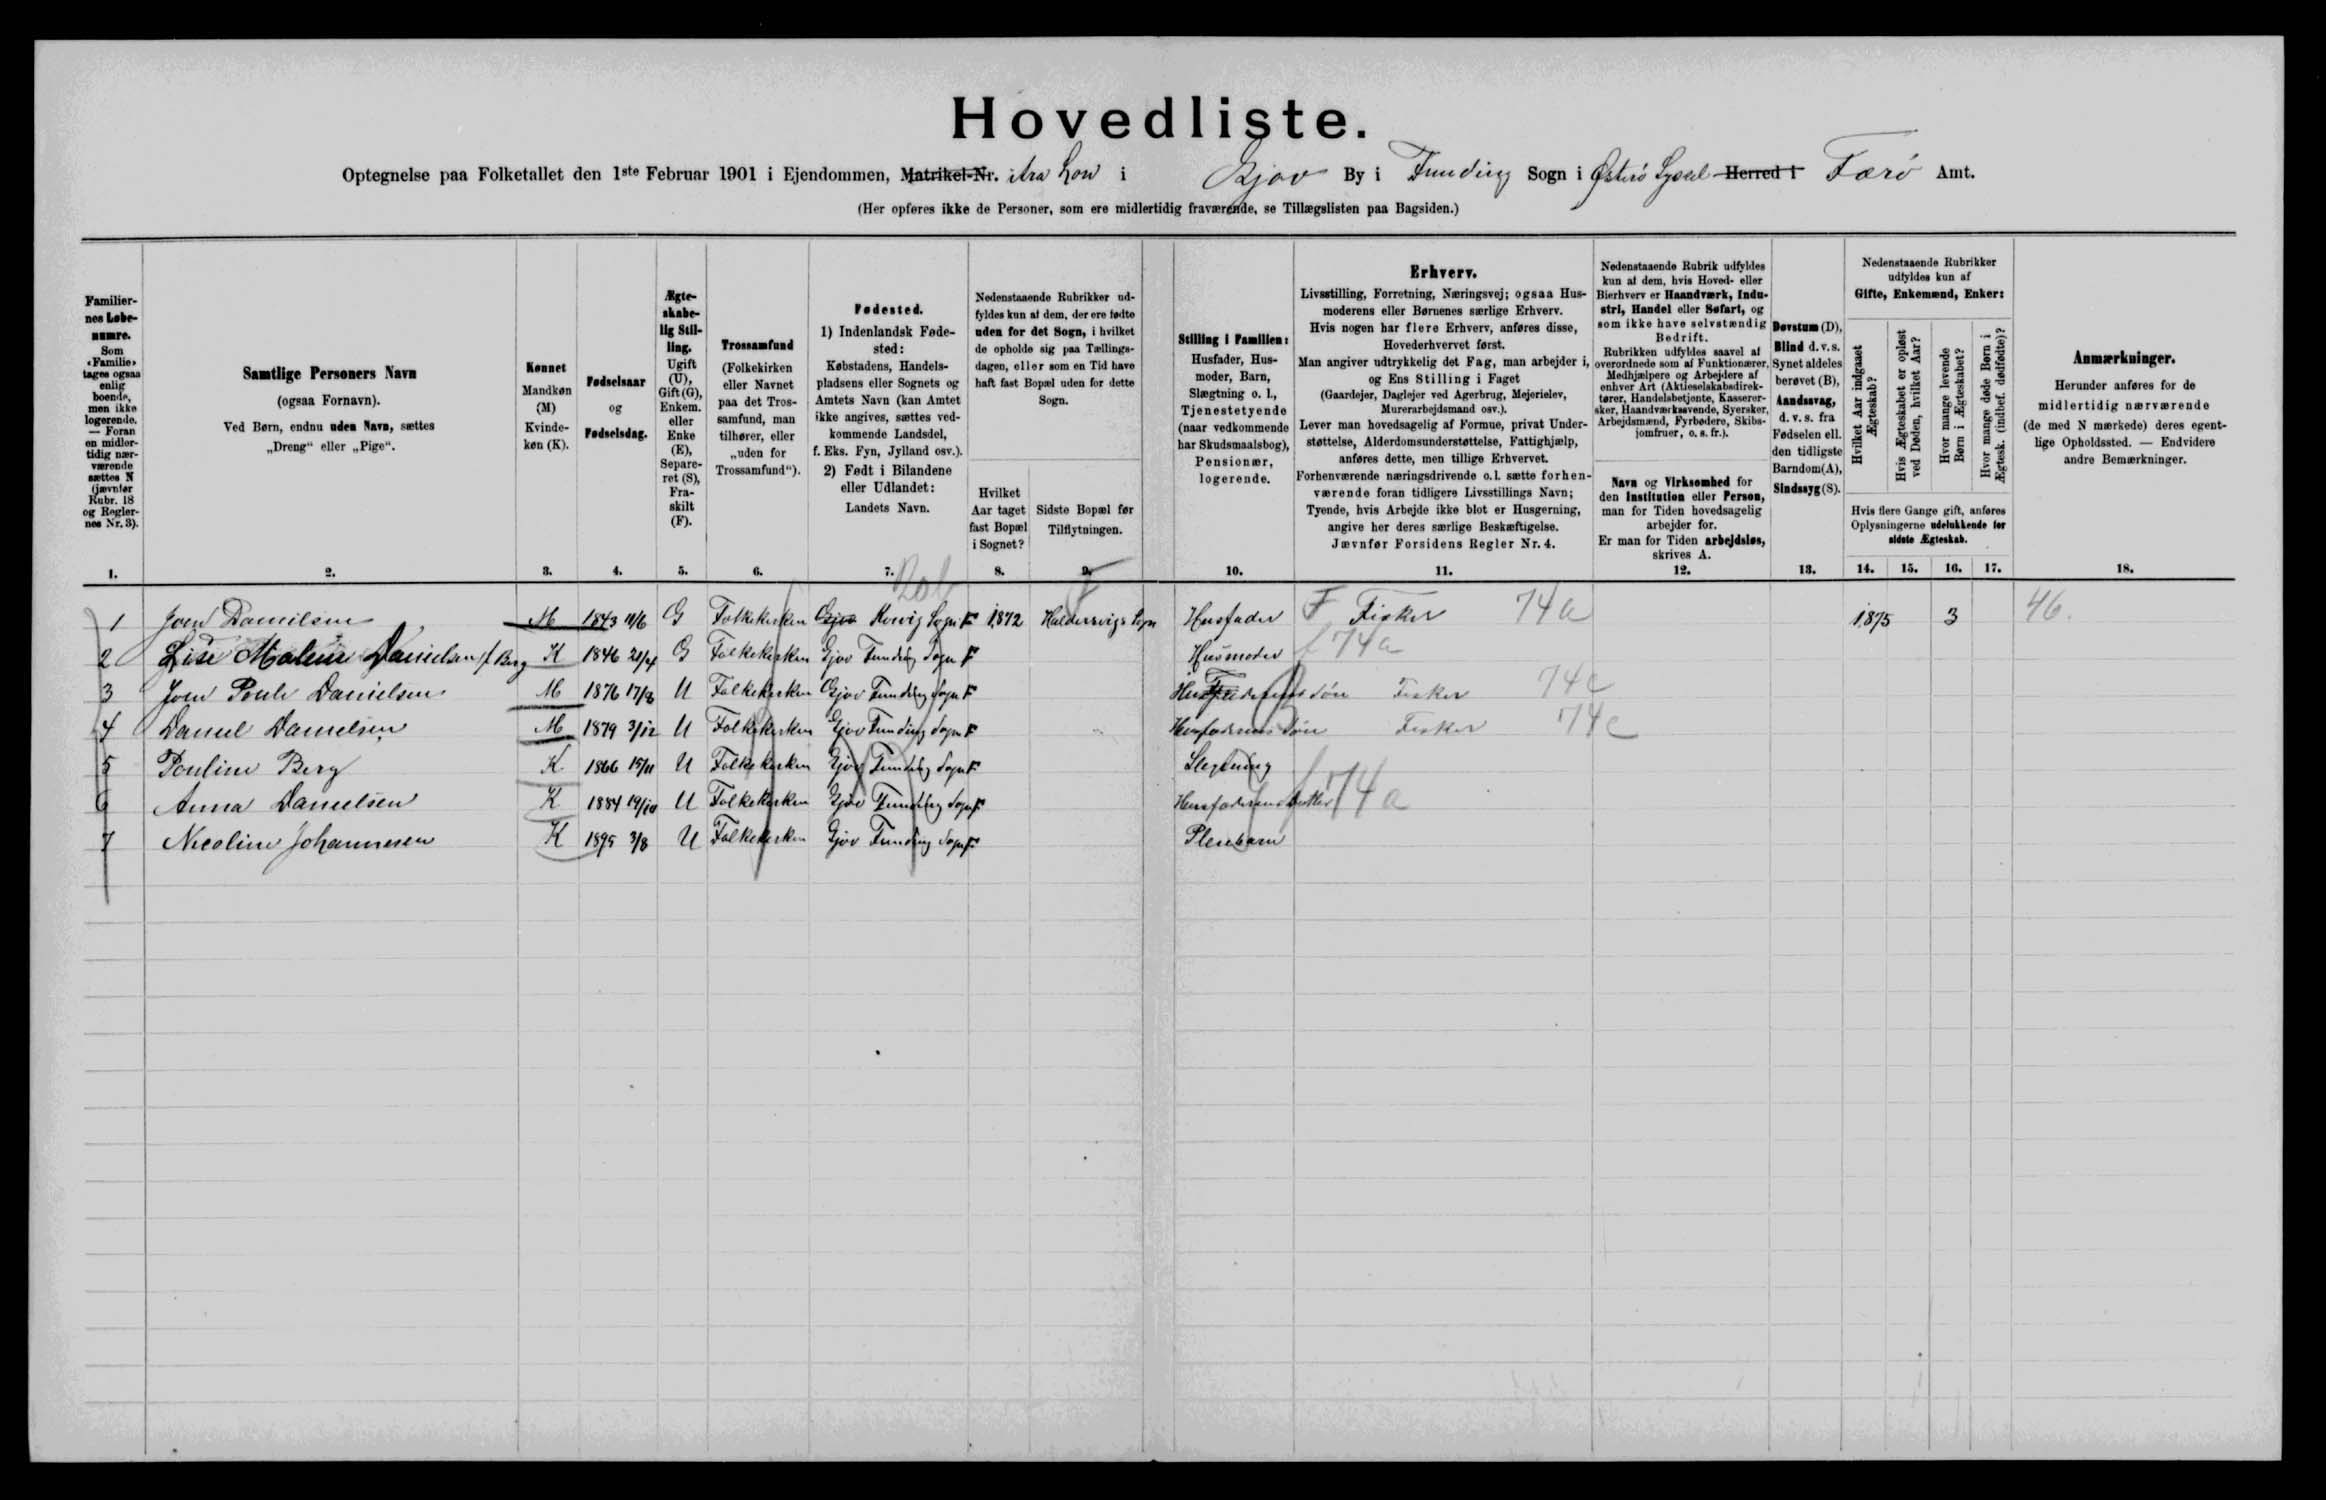 Hovedliste.
Optegnelse paa Folketallet den 1ste Februar 1901 i Ejendommen, Matrikel-Nr. i Gjov By i Funding Sogn i Østerø Syssel Herred i Færø Amt.
(Her opføres ikke de Personer, som ere midlertidig fraværende, se Tillægslisten paa Bagsiden.)
Familiernes Løbenumre.
Som «Familie» tages ogsaa enlig boende, men ikke logerende. — Foran en midlertidig nærværende sættes N (jævnfør Rubr. 18 og Reglernes Nr. 3).
1.
Samtlige Personers Navn
(ogsaa Fornavn).
Ved Børn, endnu uden Navn, sættes
„Dreng“ eller „Pige“.
2.
Kønnet
Mandkøn
(M)
Kvindekøn (K).
3.
Fødselsaar
og
Fødselsdag.
4.
Ægteskabelig Stilling.
Ugift (U), Gift (G), Enkem. eller Enke (E), Separeret (S), Fraskilt (F).
5.
Trossamfund
(Folkekirken eller Navnet paa det Trossamfund, man tilhører, eller „uden for Trossamfund“).
6.
Fødested.
1) Indenlandsk Fødested:
Købstadens, Handelspladsens eller Sognets og Amtets Navn (kan Amtet ikke angives, sættes vedkommende Landsdel, f. Eks. Fyn, Jylland osv.).
2) Født i Bilandene eller Udlandet:
Landets Navn.
7.
Nedenstaaende Rubrikker udfyldes kun af dem, der ere fødte uden for det Sogn, i hvilket de opholde sig paa Tællingsdagen, eller som en Tid have haft fast Bopæl uden for dette Sogn.
Hvilket Aar taget fast Bopæl i Sognet?
8.
Sidste Bopæl før Tilflytningen.
9.
Stilling i Familien:
Husfader, Husmoder, Barn, Slægtning o. l., Tjenestetyende (naar vedkommende har Skudsmaalsbog), Pensionær, logerende.
10.
Erhverv.
Livsstilling, Forretning, Næringsvej; ogsaa Husmoderens eller Børnenes særlige Erhverv.
Hvis nogen har flere Erhverv, anføres disse, Hovederhvervet først.
Man angiver udtrykkelig det Fag, man arbejder i, og Ens Stilling i Faget
(Gaardejer, Daglejer ved Agerbrug, Mejerielev, Murerarbejdsmand osv.).
Lever man hovedsagelig af Formue, privat Understøttelse, Alderdomsunderstøttelse, Fattighjælp, anføres dette, men tillige Erhvervet.
Forhenværende næringsdrivende o. l. sætte forhenværende foran tidligere Livsstillings Navn;
Tyende, hvis Arbejde ikke blot er Husgerning, angive her deres særlige Beskæftigelse.
Jævnfør Forsidens Regler Nr. 4.
11.
Nedenstaaende Rubrik udfyldes kun af dem, hvis Hoved- eller Bierhverv er Haandværk, Industri, Handel eller Søfart, og som ikke have selvstændig Bedrift.
Rubrikken udfyldes saavel af overordnede som af Funktionærer, Medhjælpere og Arbejdere af enhver Art (Aktieselskabsdirektører, Handelsbetjente, Kasserersker, Haandværkssvende, Syersker, Arbejdsmænd, Fyrbødere, Skibsjomfruer, o. s. fr.).
Navn og Virksomhed for den Institution eller Person, man for Tiden hovedsagelig arbejder for.
Er man for Tiden arbejdsløs, skrives A.
12.
Døvstum (D), Blind d. v. s. Synet aldeles berøvet (B), Aandssvag, d. v. s. fra Fødselen ell. den tidligste Barndom (A), Sindssyg (S).
13.
Nedenstaaende Rubrikker udfyldes kun af
Gifte, Enkemænd, Enker:
Hvilket Aar indgaaet Ægteskab?
Hvis Ægteskabet er opløst ved Døden, hvilket Aar?
Hvor mange levende Børn i Ægteskabet?
Hvor mange døde Børn i Ægtesk. (indbef. dødfødte)?
Hvis flere Gange gift, anføres Oplysningerne udelukkende for sidste Ægteskab.
14. 15. 16. 17.
Anmærkninger.
Herunder anføres for de midlertidig nærværende (de med N mærkede) deres egentlige Opholdssted. — Endvidere andre Bemærkninger.
18.
1 Joen Danielsen M 1843 11/6 G Folkekirken Gjov Kvivig Sogn F 1872 Haldersvigs Sogn Husfader F Fisker 74a 1875 3 46.
2 Lise Malene Danielsen f. Berg K 1846 G Folkekirken Gjov Funding Sogn F Husmoder f 74a
3 Joen Poule Danielsen M 1876 17/8 U Folkekirken Gjov Funding Sogn F Husfaderens Søn Fisker 74c
4 Daniel Danielsen M 1879 3/12 U Folkekirken Gjov Funding Sogn F Husfaderens Søn Fisker 74c
5 Pouline Berg K 1866 15/11 U Folkekirken Gjov Funding Sogn F Slegtning
6 Anna Danielsen K 1884 19/10 U Folkekirken Gjov Funding Sogn F Husfaderens Datter f 74a
7 Nicoline Johannesen K 1895 3/8 U Folkekirken Gjov Funding Sogn F Pleiebarn